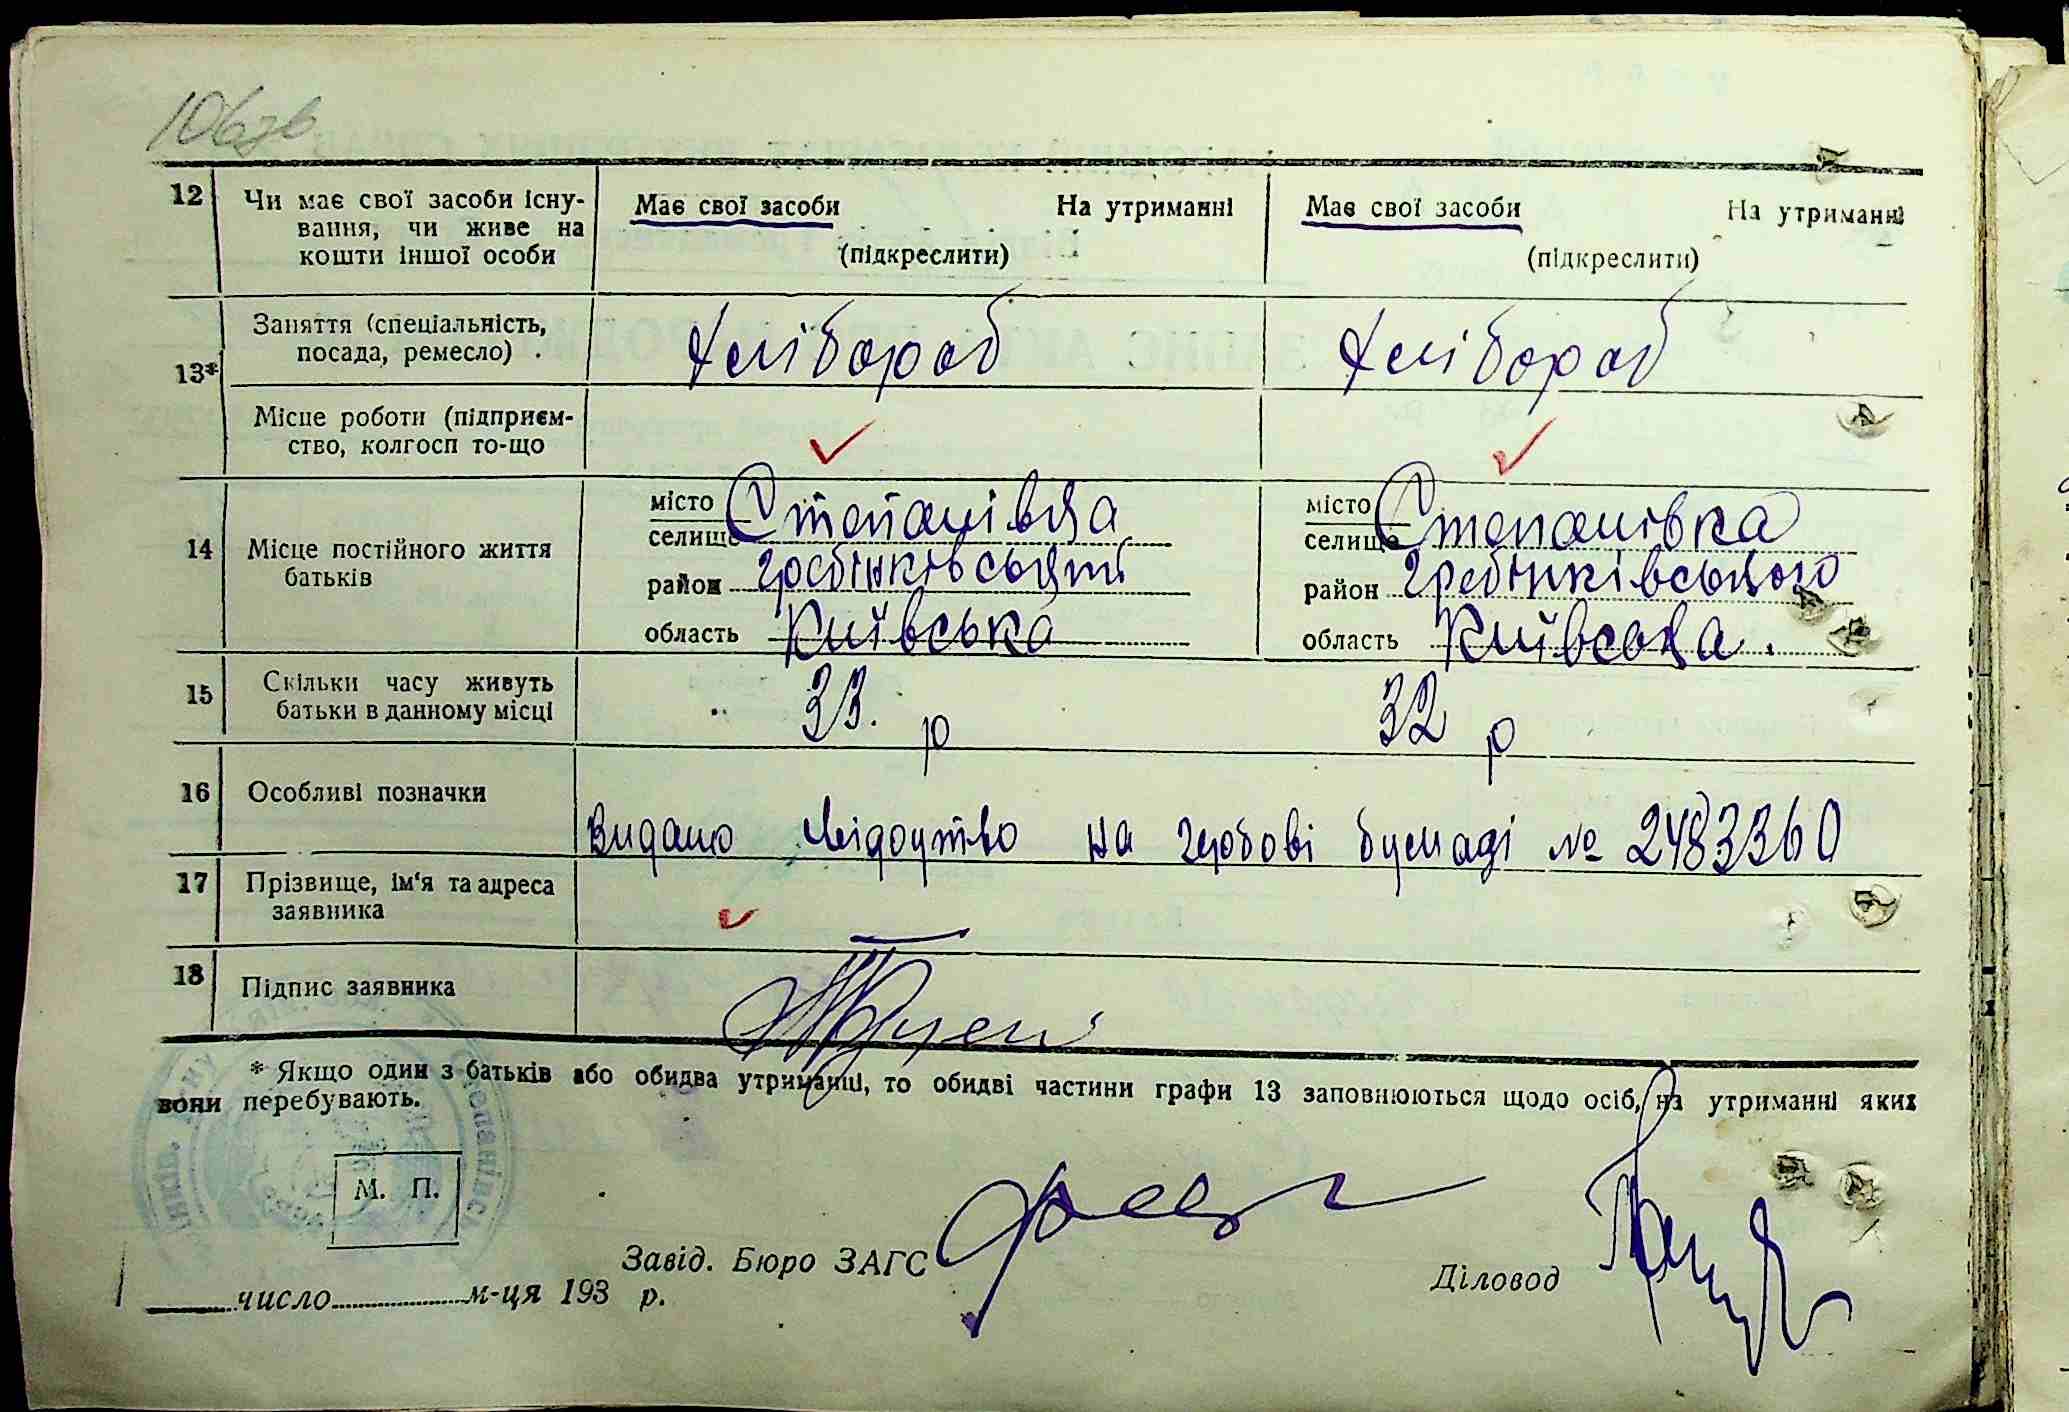 106зв
12 Чи має свої засоби існу- Має свої засоби На утриманні Має свої засоби На утриманні
вання, чи живе на
кошти іншої особи (підкреслити) (підкреслити)
Заняття (спеціальність,
посада, ремесло) . Хлібороб Хлібороб
13*
Місце роботи (підприєм-
ство, колгосп то-що
місто Степанівка місто Степанівка
селище селище
14 Місце постійного життя район гребінківський район гребінківського
батьків
область Київська область Київська.
15 Скільки часу живуть 33. р 32 р
батьки в данному місці
16 Особливі позначки
Видано свідоцтво на гербові бумаді № 2483360
17 Прізвище, ім'я та адреса
заявника
18 Підпис заявника
* Якщо один з батьків або обидва утриманці, то обидві частини графи 13 заповнюються щодо осіб, на утриманні яких
вони перебувають.
М. П.
Завід. Бюро ЗАГС
Діловод
число м-ця 193 р.